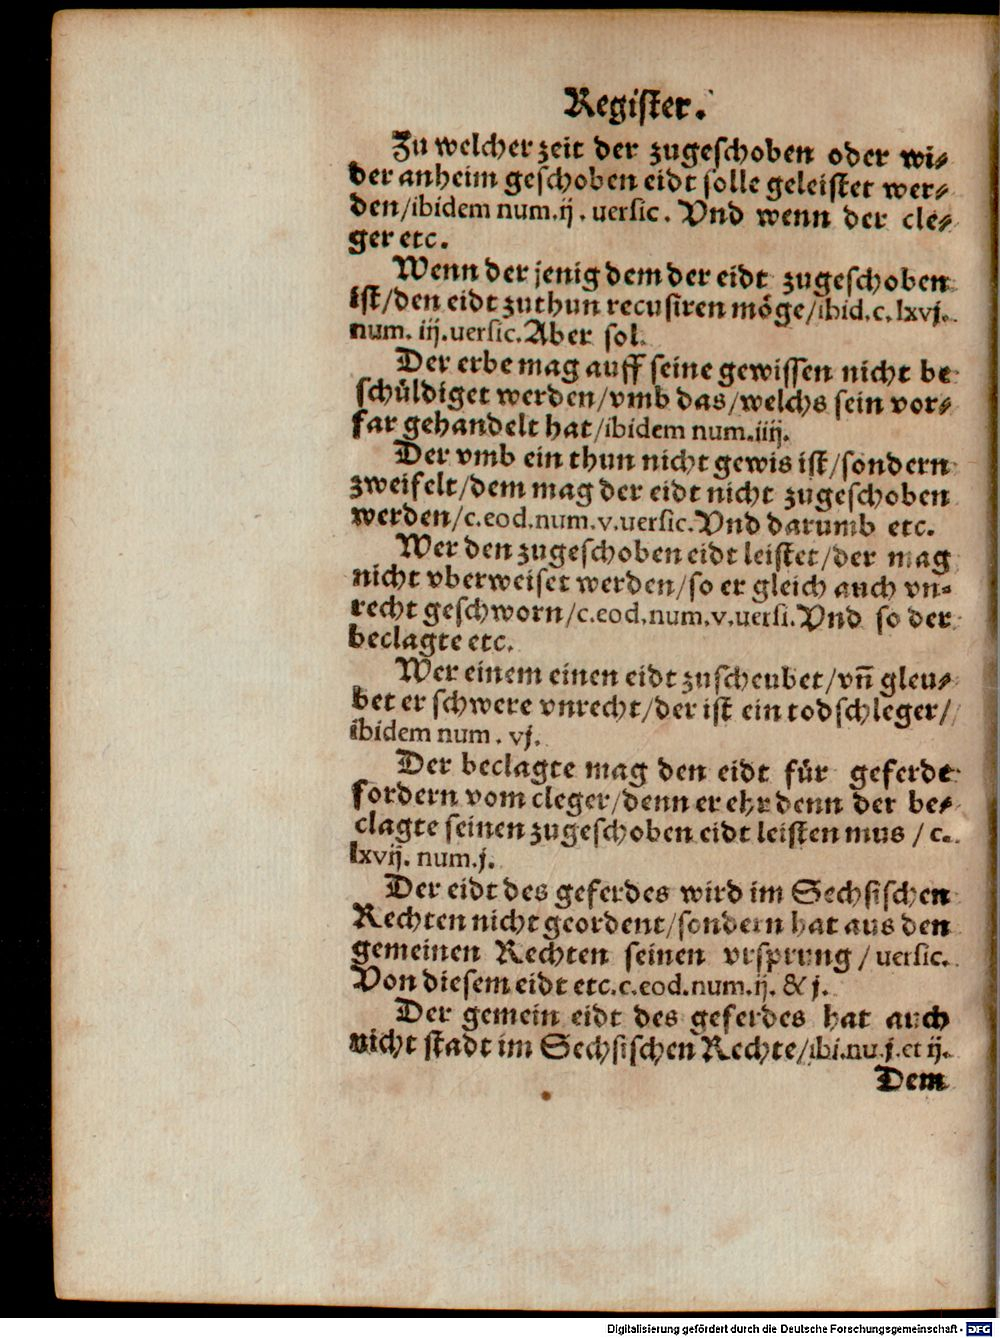 Register.
Zu welcher zeit der zugeschoben oder wi⸗
der anheim geschoben eidt solle geleistet wer⸗
den/ibidem num.ij. uersic. Vnd wenn der cle⸗
ger etc.
Wenn der jenig dem der eidt zugeschoben
ist/den eidt zuthun recusiren möge/ibid.c.lxvj.
num. iij.uersic.Aber sol.
Der erbe mag auff seine gewissen nicht be
schüldiget werden/vmb das/welchs sein vor⸗
far gehandelt hat/ibidem num.iiij.
Der vmb ein thun nicht gewis ist/sondern
zweifelt/dem mag der eidt nicht zugeschoben
werden/c.eod.num.v.uersic.Vnd darumb etc.
Wer den zugeschoben eidt leistet/der mag
nicht vberweiset werden/so er gleich auch vn⸗
recht geschworn/c.eod.num.v.uersi.Vnd so der
beclagte etc.
Wer einem einen eidt zuscheubet/vn̄ gleu⸗
bet er schwere vnrecht/der ist ein todschleger/
ibidem num. vj.
Der beclagte mag den eidt für geferde
fordern vom cleger/denn er ehr denn der be⸗
clagte seinen zugeschoben eidt leisten mus / c.
lxvij. num.j.
Der eidt des geferdes wird im Sechsischen
Rechten nicht geordent/sondern hat aus den
gemeinen Rechten seinen vrsprung / uersic.
Von diesem eidt etc.c.eod.num.ij. & j.
Der gemein eidt des geferdes hat auch
nicht stadt im Sechsischen Rechte/ibi.nu.j.et ij.
Dem
Digitalisierung gefördert durch die Deutsche Forschungsgemeinschaft - DFG